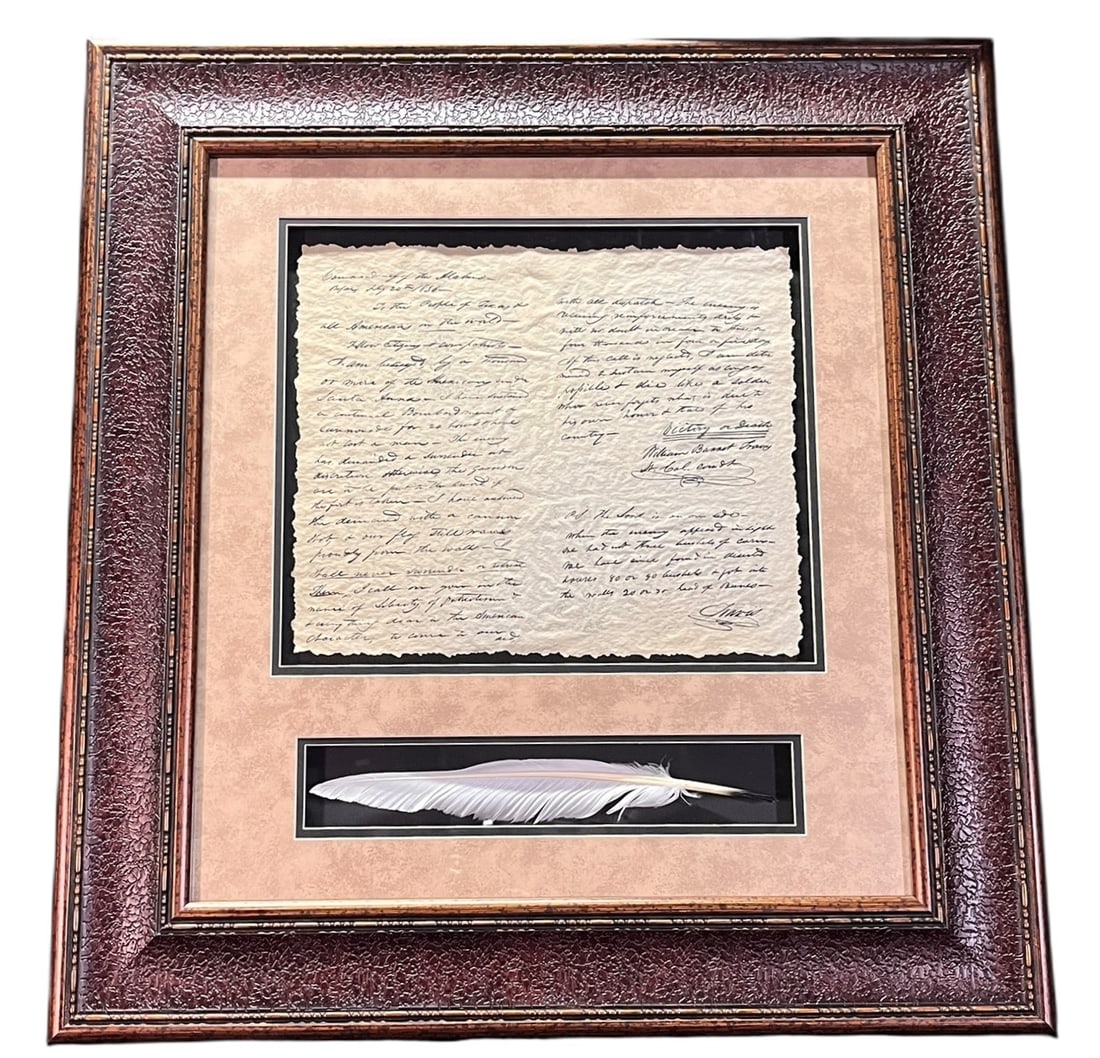 Commandancy of the Alamo
Bejar, Fby 24th 1836
To the People of Texas &
all Americans in the world
Fellow Citizens & Compatriots
I am besieged, by a thousand
or more of the Mexicans under
Santa Anna - I have sustained
a continual Bombardment &
cannonade for 24 hours & have
not lost a man - The enemy
has demanded a surrender at
discretion, otherwise, the garrison
are to be put to the sword, if
the fort is taken - I have answered
the demand with a cannon
shot, & our flag still waves
proudly from the wall - I
shall never surrender or retreat
Then, I call on you in the
name of Liberty, of patriotism &
every thing dear to the American
character, to come to our aid
with all dispatch - The enemy is
receiving reinforcements daily &
will no doubt increase to three or
four thousand in four or five days
If this call is neglected, I am deter
mined to sustain myself as long as
possible & die like a soldier
who never forgets what is due to
his own honor & that of his
country -
Victory or Death
William Barret Travis
Lt. Col. comdt
P.S. The Lord is on our side -
When the enemy appeared in sight
we had not three bushels of corn -
We have since found in deserted
houses 80 or 90 bushels & got into
the walls 20 or 30 head of Beeves -
Travis